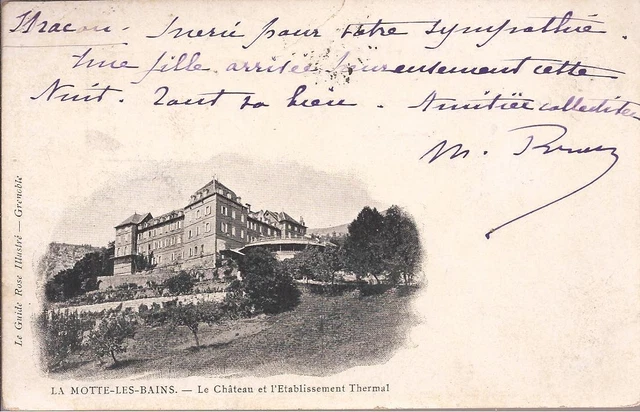 Merci pour votre sympathie.
Une fille arrivée heureusement cette
Nuit. Tout va bien. Amitiés collectives
M.
Le Guide Rose Illustré — Grenoble
LA MOTTE-LES-BAINS. — Le Château et l'Etablissement Thermal